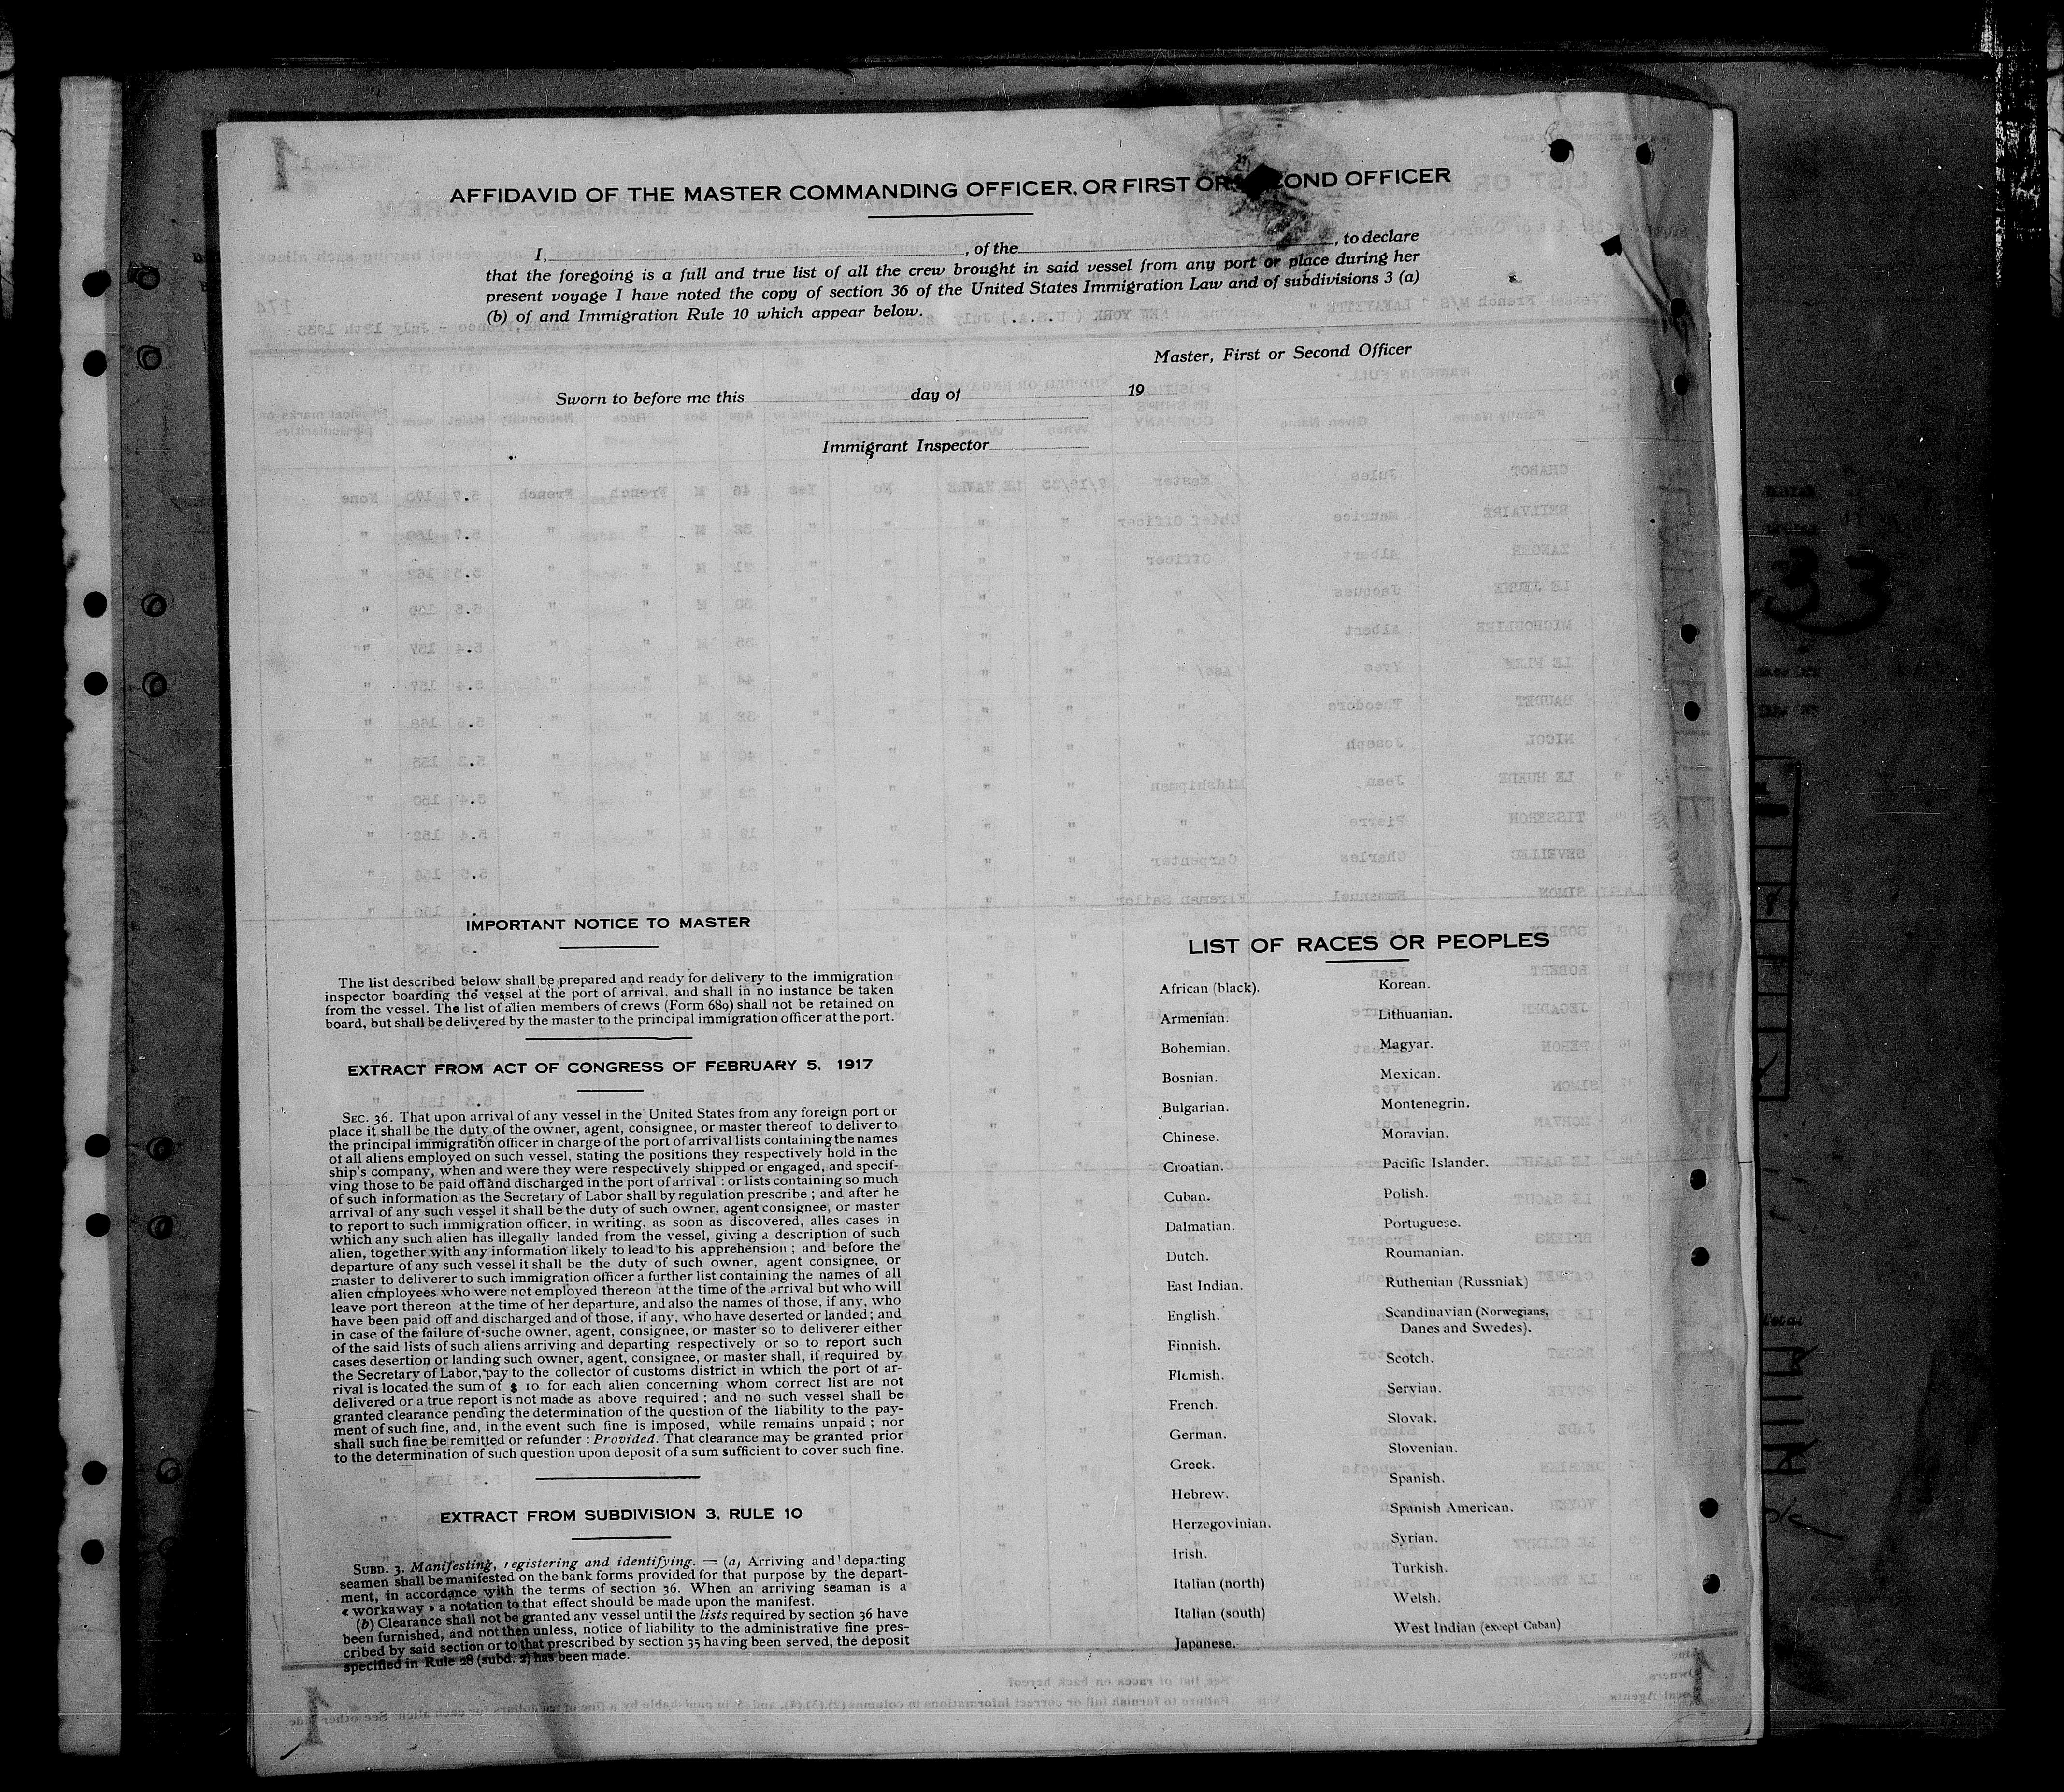 AFFIDAVID OF THE MASTER COMMANDING OFFICER, OR FIRST OR SECOND OFFICER
I, , of the , to declare
that the foregoing is a full and true list of all the crew brought in said vessel from any port or place during her
present voyage I have noted the copy of section 36 of the United States Immigration Law and of subdivisions 3 (a)
(b) of and Immigration Rule 10 which appear below.
Master, First or Second Officer
Sworn to before me this day of 19
Immigrant Inspector
IMPORTANT NOTICE TO MASTER
The list described below shall be prepared and ready for delivery to the immigration
inspector boarding the vessel at the port of arrival, and shall in no instance be taken
from the vessel. The list of alien members of crews (Form 689) shall not be retained on
board, but shall be delivered by the master to the principal immigration officer at the port.
EXTRACT FROM ACT OF CONGRESS OF FEBRUARY 5, 1917
SEC. 36. That upon arrival of any vessel in the United States from any foreign port or
place it shall be the duty of the owner, agent, consignee, or master thereof to deliver to
the principal immigration officer in charge of the port of arrival lists containing the names
of all aliens employed on such vessel, stating the positions they respectively hold in the
ship's company, when and were they were respectively shipped or engaged, and specif-
ving those to be paid off and discharged in the port of arrival : or lists containing so much
of such information as the Secretary of Labor shall by regulation prescribe ; and after he
arrival of any such vessel it shall be the duty of such owner, agent consignee, or master
to report to such immigration officer, in writing, as soon as discovered, alles cases in
which any such alien has illegally landed from the vessel, giving a description of such
alien, together with any information likely to lead to his apprehension ; and before the
departure of any such vessel it shall be the duty of such owner, agent consignee, or
master to deliverer to such immigration officer a further list containing the names of all
alien employees who were not employed thereon at the time of the arrival but who will
leave port thereon at the time of her departure, and also the names of those, if any, who
have been paid off and discharged and of those, if any, who have deserted or landed ; and
in case of the failure of suche owner, agent, consignee, or master so to deliverer either
of the said lists of such aliens arriving and departing respectively or so to report such
cases desertion or landing such owner, agent, consignee, or master shall, if required by
the Secretary of Labor, pay to the collector of customs district in which the port of ar-
rival is located the sum of $ 10 for each alien concerning whom correct list are not
delivered or a true report is not made as above required ; and no such vessel shall be
granted clearance pending the determination of the question of the liability to the pay-
ment of such fine, and, in the event such fine is imposed, while remains unpaid ; nor
shall such fine be remitted or refunder : Provided. That clearance may be granted prior
to the determination of such question upon deposit of a sum sufficient to cover such fine.
EXTRACT FROM SUBDIVISION 3, RULE 10
SUBD. 3. Manifesting, registering and identifying. = (a) Arriving and departing
seamen shall be manifested on the bank forms provided for that purpose by the depart-
ment, in accordance with the terms of section 36. When an arriving seaman is a
« workaway » a notation to that effect should be made upon the manifest.
(b) Clearance shall not be granted any vessel until the lists required by section 36 have
been furnished, and not then unless, notice of liability to the administrative fine pres-
cribed by said section or to that prescribed by section 35 having been served, the deposit
specified in Rule 28 (subd. 2) has been made.
LIST OF RACES OR PEOPLES
African (black).
Armenian.
Bohemian.
Bosnian.
Bulgarian.
Chinese.
Croatian.
Cuban.
Dalmatian.
Dutch.
East Indian.
English.
Finnish.
Flemish.
French.
German.
Greek.
Hebrew.
Herzegovinian.
Irish.
Italian (north)
Italian (south)
Japanese.
Korean.
Lithuanian.
Magyar.
Mexican.
Montenegrin.
Moravian.
Pacific Islander.
Polish.
Portuguese.
Roumanian.
Ruthenian (Russniak)
Scandinavian (Norwegians,
Danes and Swedes).
Scotch.
Servian.
Slovak.
Slovenian.
Spanish.
Spanish American.
Syrian.
Turkish.
Welsh.
West Indian (except Cuban)